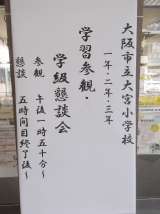 大阪市立大宮小学校
一年・二年・三年
学習参観・
学級懇談会
参観 午後一時五十分〜
懇談 五時間目終了後〜